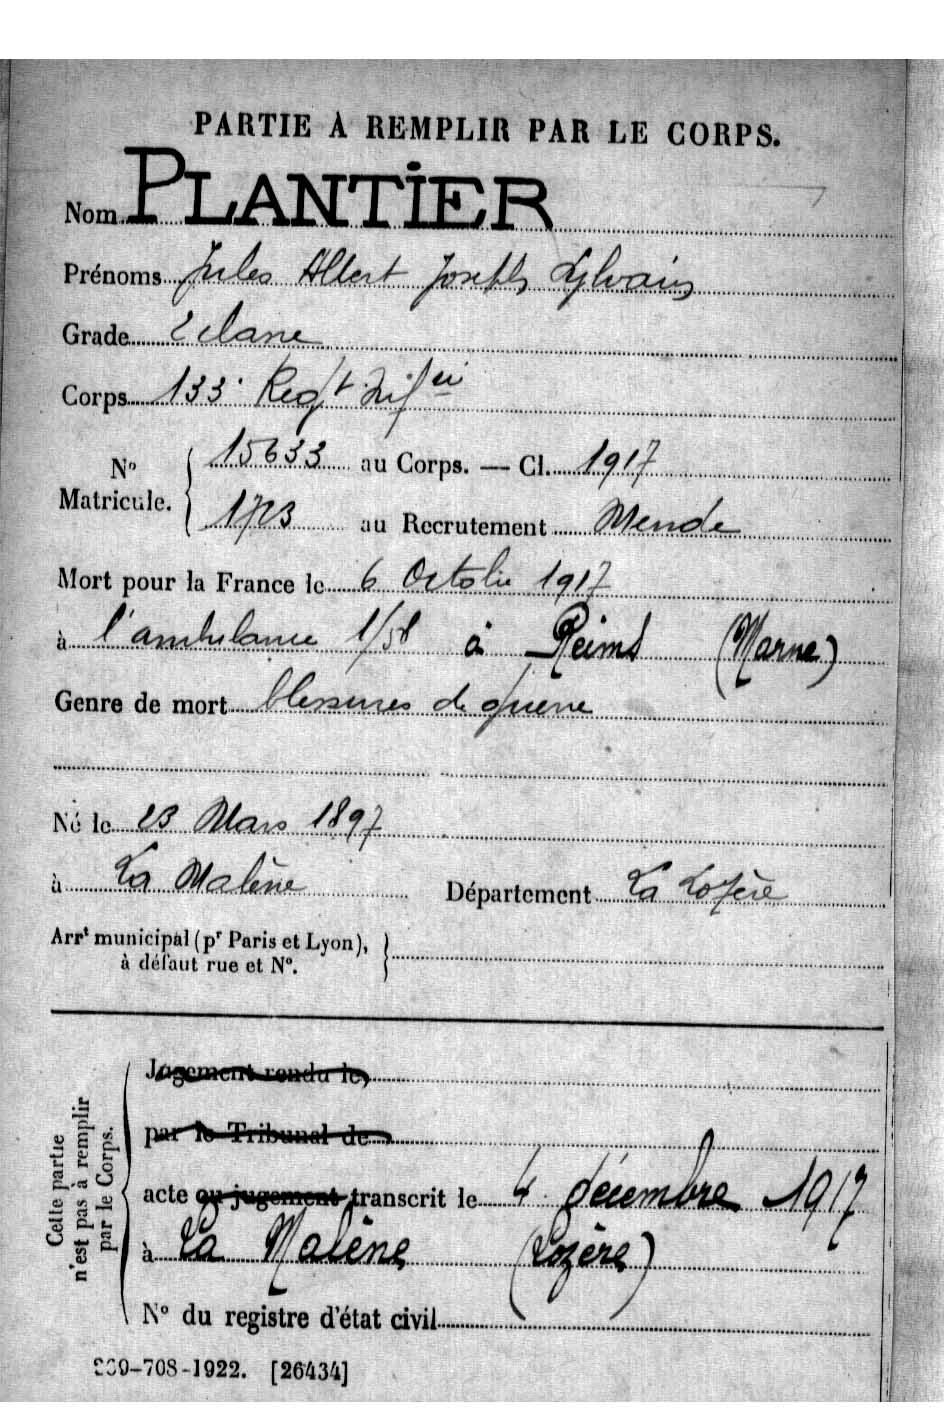 PARTIE À REMPLIR PAR LE CORPS.
Nom PLANTIER
Prénoms Jules Albert Joseph Sylvain
Grade 2 classe
Corps 133e Regt Infie
No Matricule. 15633 au Corps. — Cl. 1917
1723 au Recrutement Mende
Mort pour la France le 6 Octobre 1917
à l'ambulance 1/58 à Reims (Marne)
Genre de mort blessures de guerre
Né le 23 Mars 1897
à La Malène Département La Lozère
Arrt municipal (pr Paris et Lyon),
à défaut rue et No.
Cette partie
n'est pas à remplir
par le Corps.
Jugement rendu le
par le Tribunal de
acte ou jugement transcrit le 4 décembre 1917
à La Malène (Lozère)
No du registre d'état civil
-708-1922. [26434]